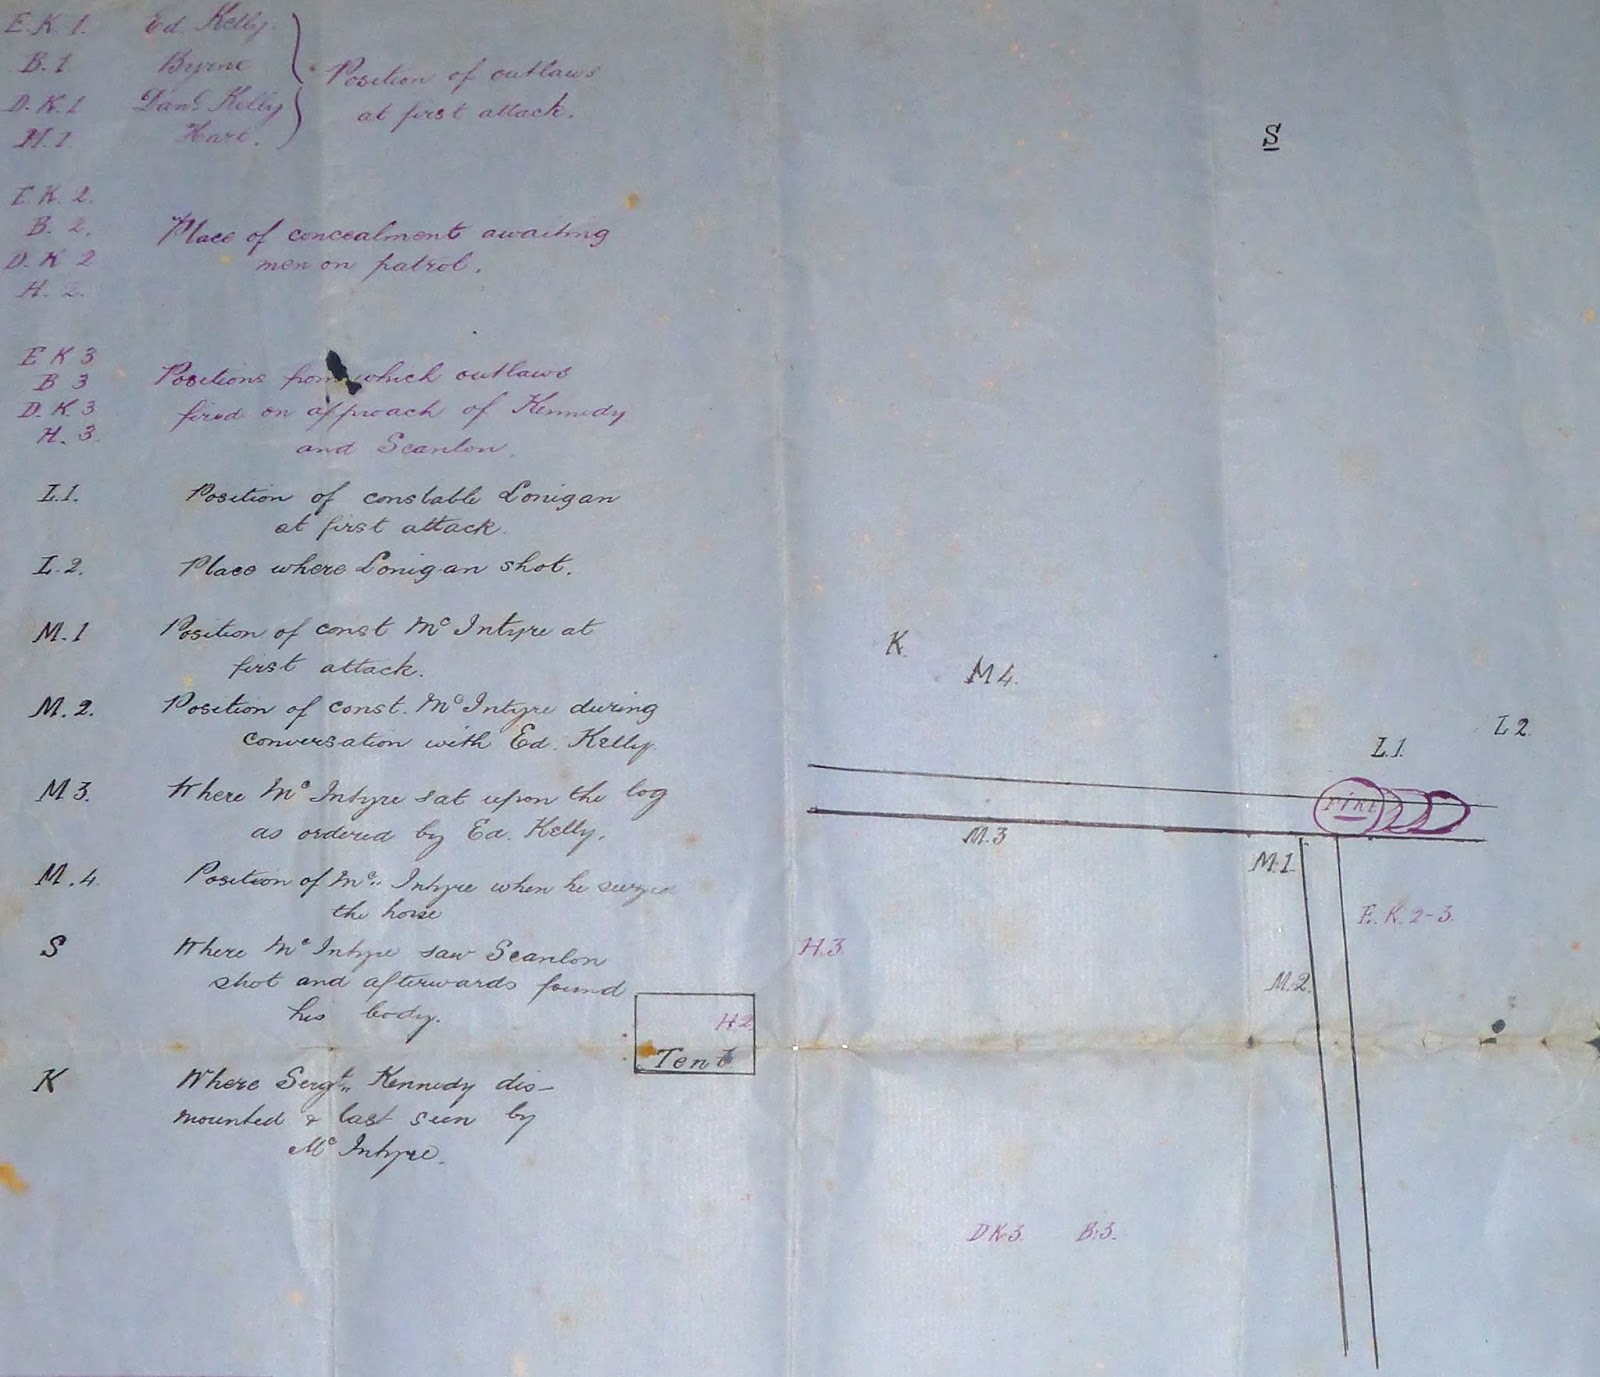 E.K.1. Ed. Kelly.
B.1 Byrne
D.K.1 Danl. Kelly
H.1 Hart.
Position of outlaws
at first attack.
E.K.2.
B.2.
D.K 2
H.2.
Place of concealment awaiting
men on patrol.
E K 3
B 3
D.K.3
H.3.
Positions from which outlaws
fired on approach of Kennedy
and Scanlon.
L.1. Position of constable Lonigan
at first attack.
L.2. Place where Lonigan shot.
M.1 Position of const Mc Intyre at
first attack.
M.2. Position of const. Mc Intyre during
conversation with Ed. Kelly.
M 3. Where Mc Intyre sat upon the log
as ordered by Ed. Kelly.
M.4. Position of Mc Intyre when he
the horse
S Where Mc Intyre saw Scanlon
shot and afterwards found
his body.
K Where Sergt. Kennedy dis-
mounted & last seen by
Mc Intyre.
S
K.
M 4.
L 2.
L.1.
FIRE
M.3
M.1.
E.K. 2-3.
H.3.
M.2.
H 2
Tent
D.K.3. B.3.